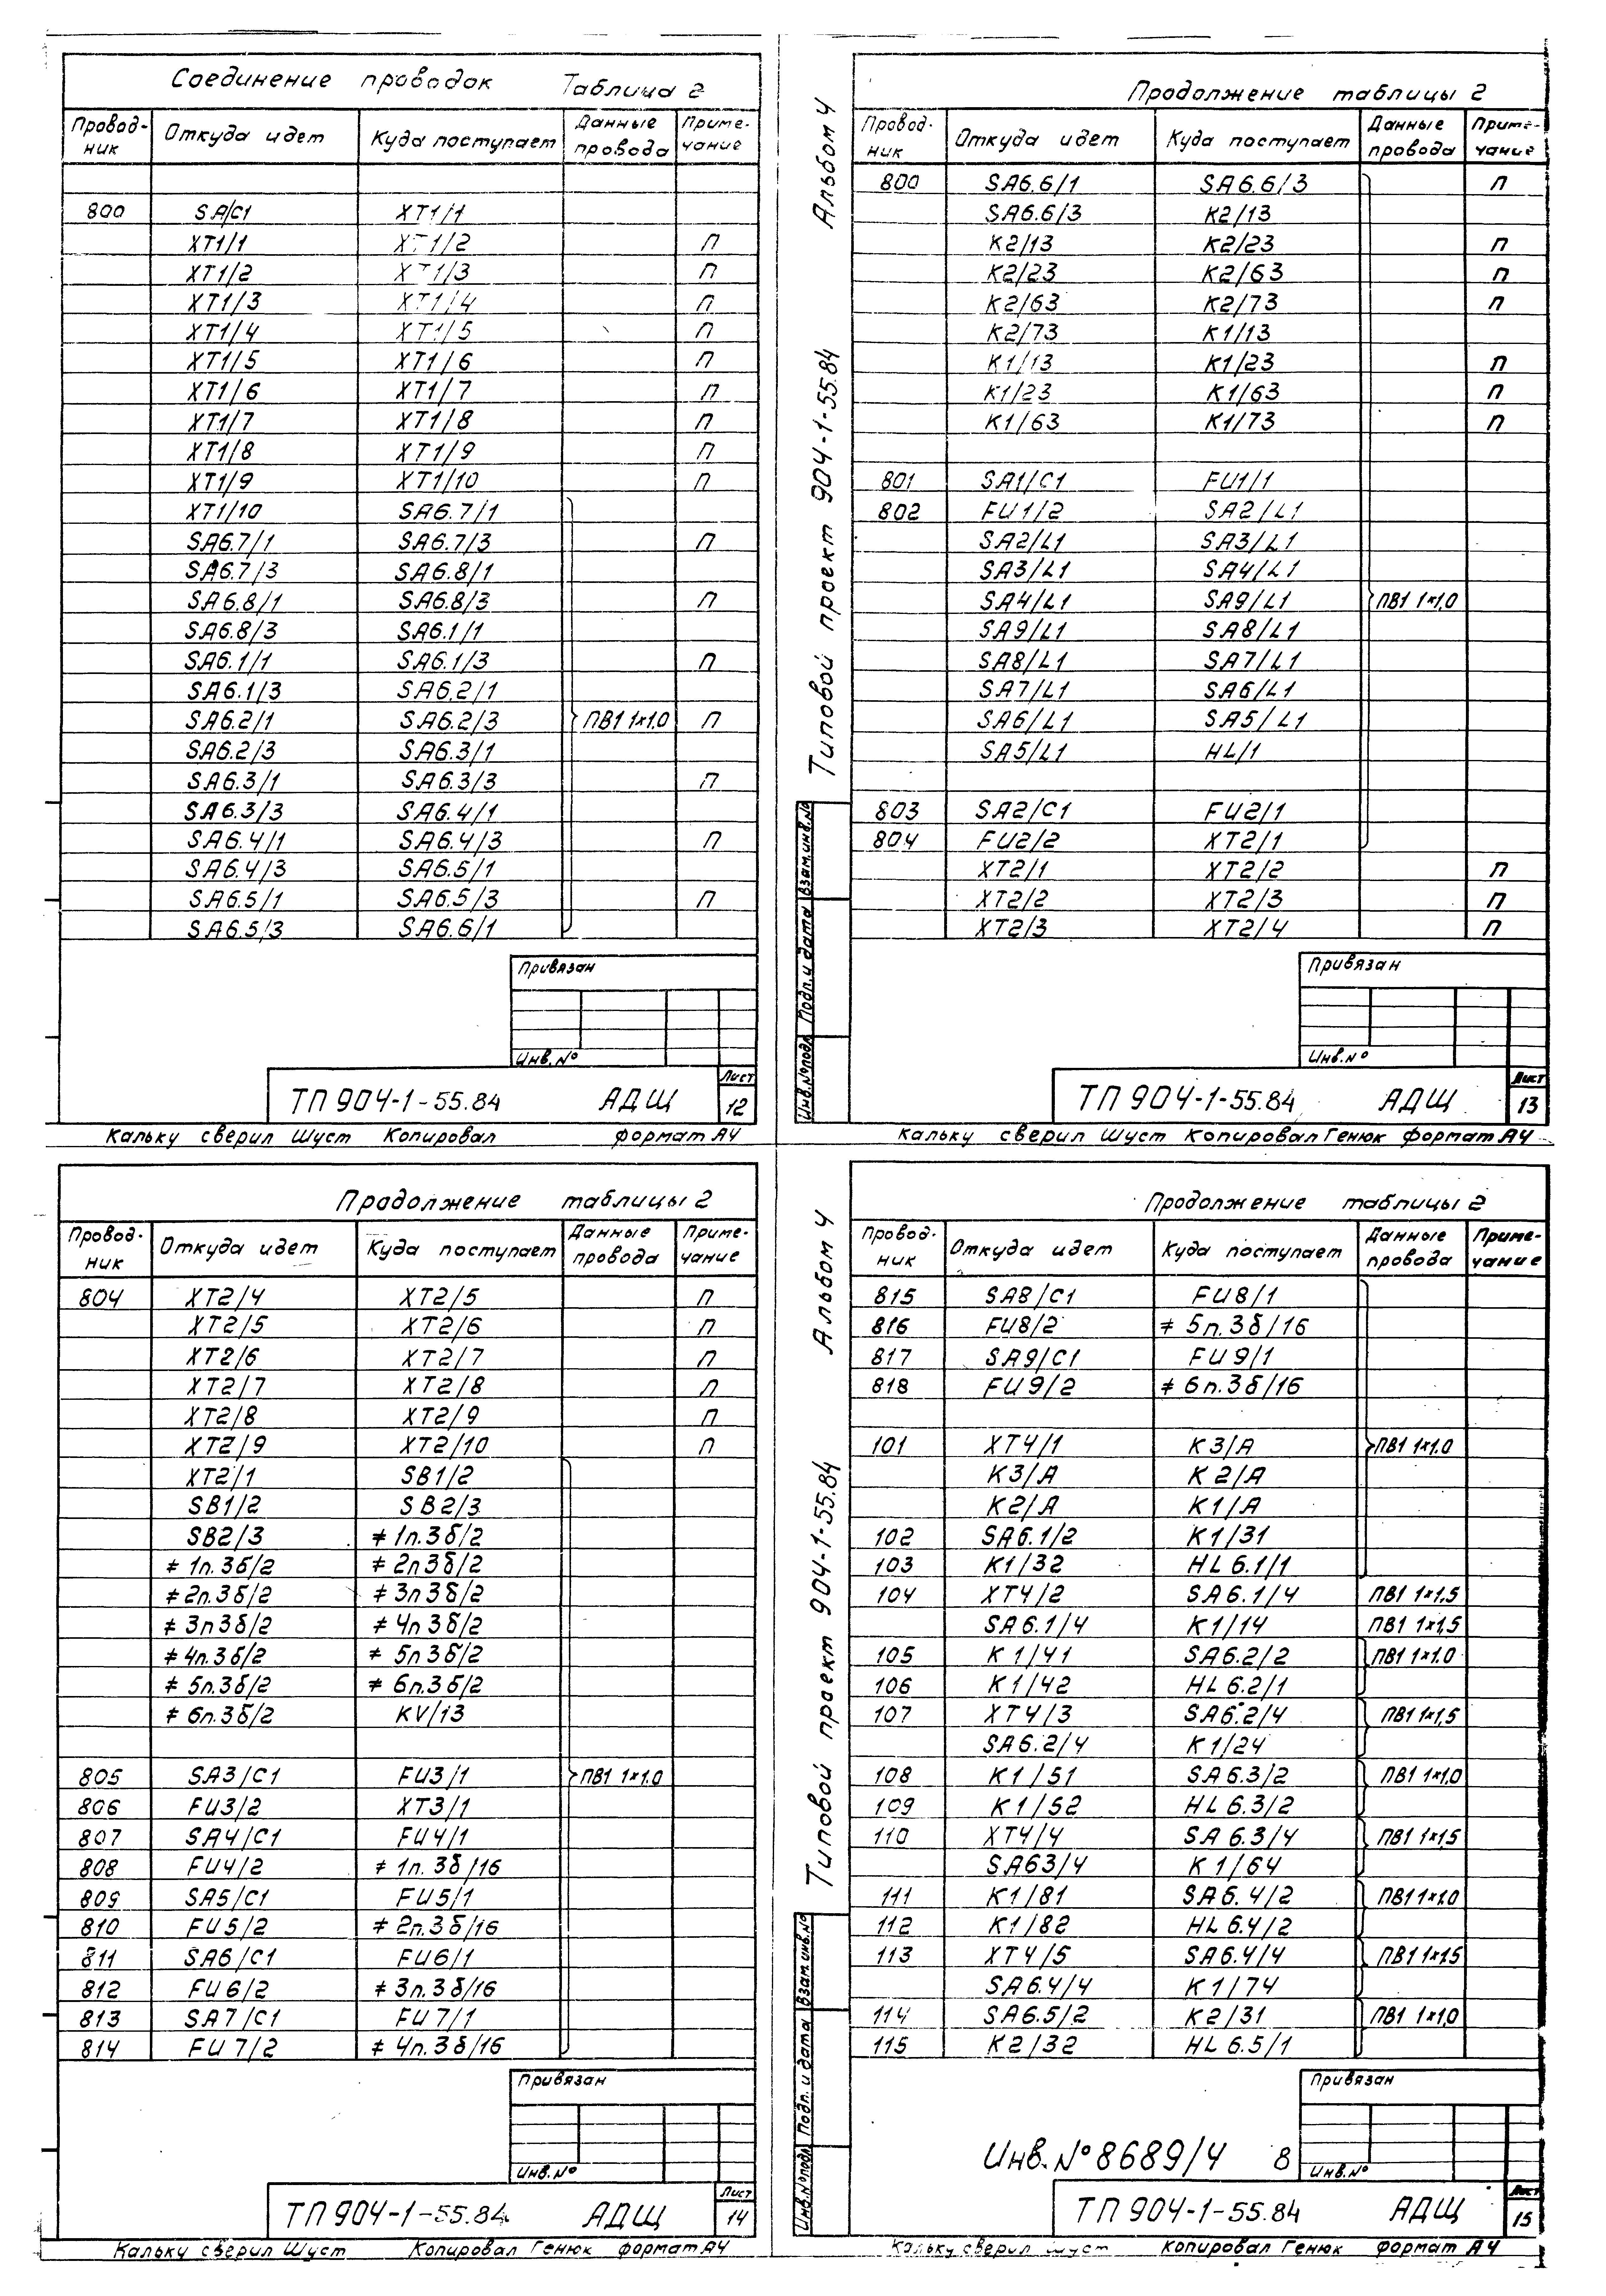 Соединение проводок Таблица 2
Провод-ник Откуда идет Куда поступает Данные провода Приме-чание
800 SA/C1 XT1/1
XT1/1 XT1/2 П
XT1/2 XT1/3 П
XT1/3 XT1/4 П
XT1/4 XT1/5 П
XT1/5 XT1/6 П
XT1/6 XT1/7 П
XT1/7 XT1/8 П
XT1/8 XT1/9 П
XT1/9 XT1/10 П
XT1/10 SA6.7/1
SA6.7/1 SA6.7/3 П
SA6.7/3 SA6.8/1
SA6.8/1 SA6.8/3 П
SA6.8/3 SA6.1/1
SA6.1/1 SA6.1/3 П
SA6.1/3 SA6.2/1
SA6.2/1 SA6.2/3 ПВ1 1×1,0 П
SA6.2/3 SA6.3/1
SA6.3/1 SA6.3/3 П
SA6.3/3 SA6.4/1
SA6.4/1 SA6.4/3 П
SA6.4/3 SA6.5/1
SA6.5/1 SA6.5/3 П
SA6.5/3 SA6.6/1
Привязан
Инв.№
ТП 904-1-55.84 АДЩ Лист 12
Кальку сверил Шуст Копировал формат А4
Альбом 4
Типовой проект 904-1-55.84
Продолжение таблицы 2
Провод-ник Откуда идет Куда поступает Данные провода Приме-чание
800 SA6.6/1 SA6.6/3 П
SA6.6/3 K2/13
K2/13 K2/23 П
K2/23 K2/63 П
K2/63 K2/73 П
K2/73 K1/13
K1/13 K1/23 П
K1/23 K1/63 П
K1/63 K1/73 П
801 SA1/C1 FU1/1
802 FU1/2 SA2/L1
SA2/L1 SA3/L1
SA3/L1 SA4/L1
SA4/L1 SA9/L1 ПВ1 1×1,0
SA9/L1 SA8/L1
SA8/L1 SA7/L1
SA7/L1 SA6/L1
SA6/L1 SA5/L1
SA5/L1 HL/1
803 SA2/C1 FU2/1
804 FU2/2 XT2/1
XT2/1 XT2/2 П
XT2/2 XT2/3 П
XT2/3 XT2/4 П
Взам.инв.№
Подп. и дата
Инв.№подл.
Привязан
Инв.№
ТП 904-1-55.84 АДЩ Лист 13
Кальку сверил Шуст Копировал Генюк формат А4
Продолжение таблицы 2
Провод-ник Откуда идет Куда поступает Данные провода Приме-чание
804 XT2/4 XT2/5 П
XT2/5 XT2/6 П
XT2/6 XT2/7 П
XT2/7 XT2/8 П
XT2/8 XT2/9 П
XT2/9 XT2/10 П
XT2/1 SB1/2
SB1/2 SB2/3
SB2/3 ≠ 1п.3б/2
≠ 1п.3б/2 ≠ 2п3б/2
≠ 2п.3б/2 ≠ 3п3б/2
≠ 3п3б/2 ≠ 4п3б/2
≠ 4п.3б/2 ≠ 5п3б/2
≠ 5п.3б/2 ≠ 6п.3б/2
≠ 6п.3б/2 KV/13
805 SA3/C1 FU3/1 ПВ1 1×1.0
806 FU3/2 XT3/1
807 SA4/C1 FU4/1
808 FU4/2 ≠ 1п.3б/16
809 SA5/C1 FU5/1
810 FU5/2 ≠ 2п.3б/16
811 SA6/C1 FU6/1
812 FU6/2 ≠ 3п.3б/16
813 SA7/C1 FU7/1
814 FU7/2 ≠ 4п.3б/16
Привязан
Инв.№
ТП 904-1-55.84 АДЩ Лист 14
Кальку сверил Шуст Копировал Генюк формат А4
Альбом 4
Типовой проект 904-1-55.84
Продолжение таблицы 2
Провод-ник Откуда идет Куда поступает Данные провода Приме-чание
815 SA8/C1 FU8/1
816 FU8/2 ≠ 5п.3б/16
817 SA9/C1 FU9/1
818 FU9/2 ≠ 6п.3б/16
101 XT4/1 K3/A ПВ1 1×1.0
K3/A K2/A
K2/A K1/A
102 SA6.1/2 K1/31
103 K1/32 HL6.1/1
104 XT4/2 SA6.1/4 ПВ1 1×1,5
SA6.1/4 K1/14 ПВ1 1×1,5
105 K1/41 SA6.2/2 ПВ1 1×1.0
106 K1/42 HL6.2/1
107 XT4/3 SA6.2/4 ПВ1 1×1,5
SA6.2/4 K1/24
108 K1/51 SA6.3/2 ПВ1 1×1,0
109 K1/52 HL6.3/2
110 XT4/4 SA6.3/4 ПВ1 1×1,5
SA63/4 K1/64
111 K1/81 SA6.4/2 ПВ1 1×1.0
112 K1/82 HL6.4/2
113 XT4/5 SA6.4/4 ПВ1 1×1,5
SA6.4/4 K1/74
114 SA6.5/2 K2/31 ПВ1 1×1,0
115 K2/32 HL6.5/1
Взам.инв.№
Подп. и дата
Инв.№подл.
Привязан
Инв.№
Инв.№8689/4 8
ТП 904-1-55.84 АДЩ Лист 15
Кальку сверил Шуст Копировал Генюк формат А4